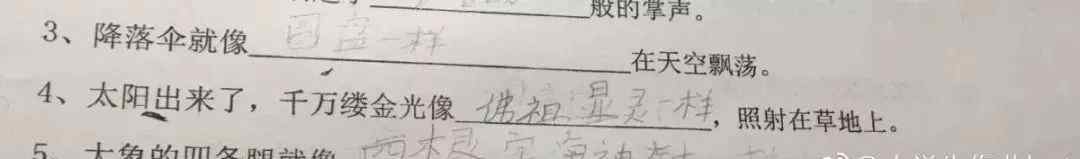 般的掌声。
3、降落伞就像圆盘一样在天空飘荡。
4、太阳出来了，千万缕金光像佛祖显灵一样，照射在草地上。
5、大象的四条腿就像